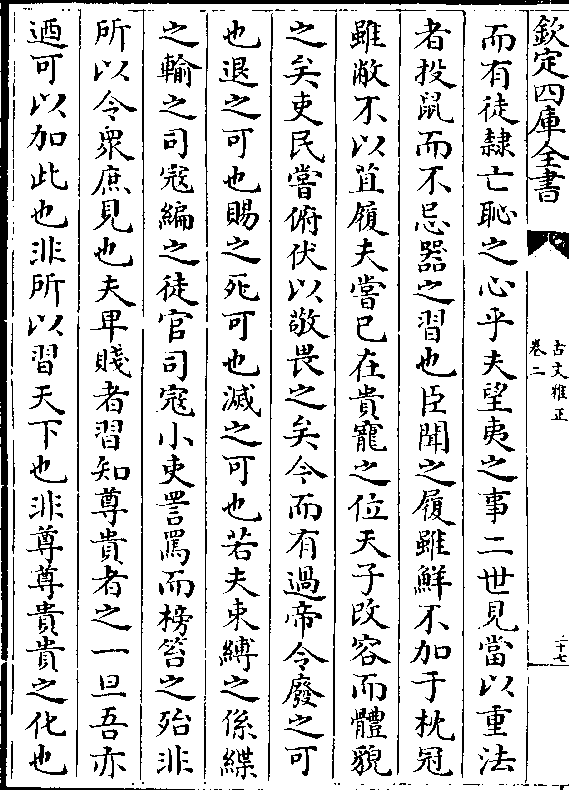 欽定四庫全書
古文雅正
卷二
二十七
而有徒隸亡恥之心乎夫望夷之事二世見當以重法
者投鼠而不忌器之習也臣聞之履雖鮮不加于枕冠
雖敝不以苴履夫嘗已在貴寵之位天子改容而體貌
之矣吏民嘗俯伏以敬畏之矣今而有過帝令廢之可
也退之可也賜之死可也滅之可也若夫束縛之係緤
之輸之司寇編之徒官司寇小吏詈罵而榜笞之殆非
所以令衆庶見也夫卑賤者習知尊貴者之一旦吾亦
迺可以加此也非所以習天下也非尊尊貴貴之化也